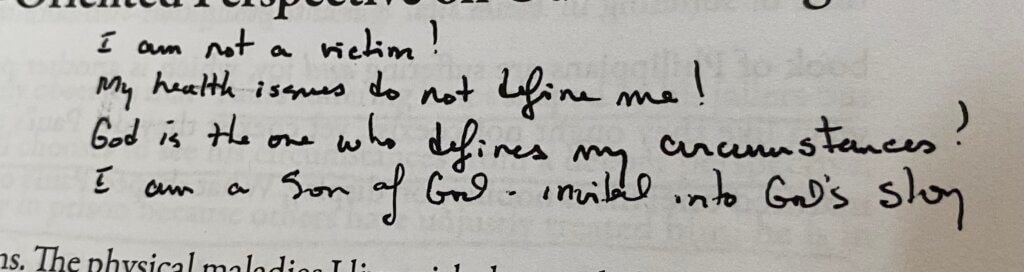 Oriented Perspective on
I am not a victim!
My health issues do not define me!
God is the one who defines my circumstances!
I am a Son of God - invited into God's story
ns. The physical maladies I